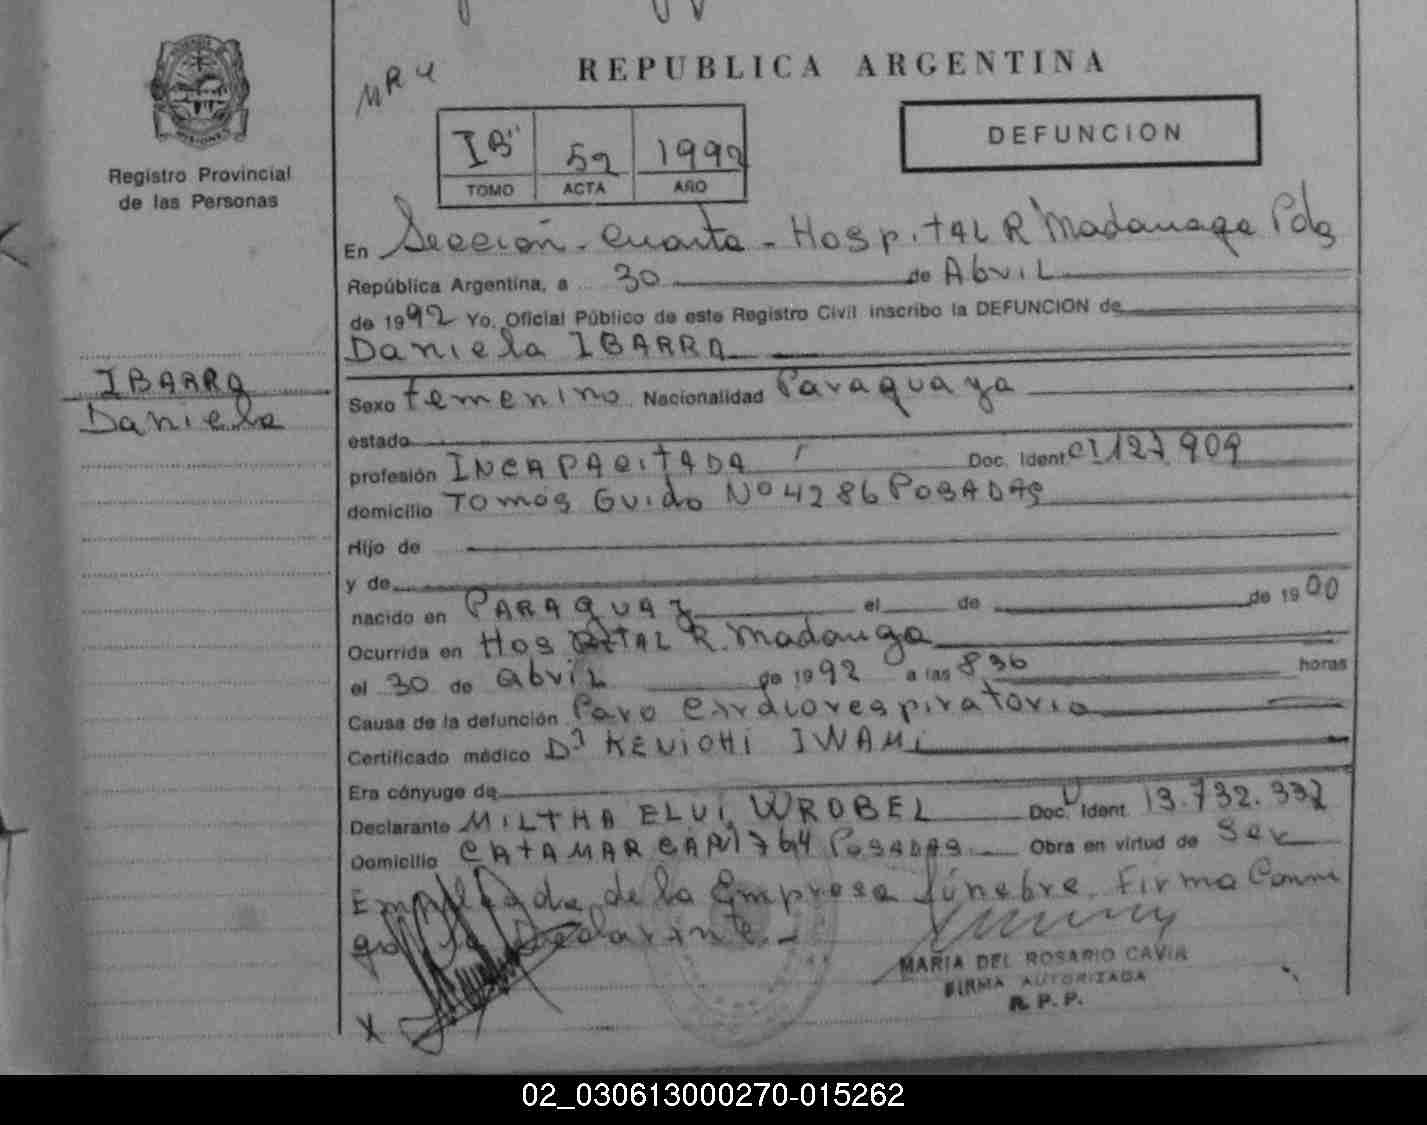 REPUBLICA ARGENTINA
MR4
IB" 52 1992
TOMO ACTA AÑO
DEFUNCION
Registro Provincial
de las Personas
En Sección Cuarta - Hospital R Madariaga Pdas
República Argentina, a 30 de Abril
de 1992 Yo, Oficial Público de este Registro Civil inscribo la DEFUNCION de
Daniela IBARRA
IBARRA
Daniela
Sexo femenino Nacionalidad Paraguaya
estado
profesión INCAPACITADA Doc. Ident CI 127.909
domicilio Tomás Guido Nº 4286 POSADAS
Hijo de
y de
nacido en PARAGUAY el de de 1900
Ocurrida en HOSPITAL R. Madariaga
el 30 de abril de 1992 a las 8 30 horas
Causa de la defunción Paro cardiorespiratorio
Certificado médico Dr KENICHI IWAMI
Era cónyuge de
Declarante MILTHA ELVI WROBEL Doc. Ident. 13.732.332
Domicilio CATAMARCA 1764 POSADAS Obra en virtud de Ser
Empleada de la Empresa fúnebre. Firma Conmi
go la Declarante.-
MARIA DEL ROSARIO CAVIA
FIRMA AUTORIZADA
R. P. P.
X
02_030613000270-015262